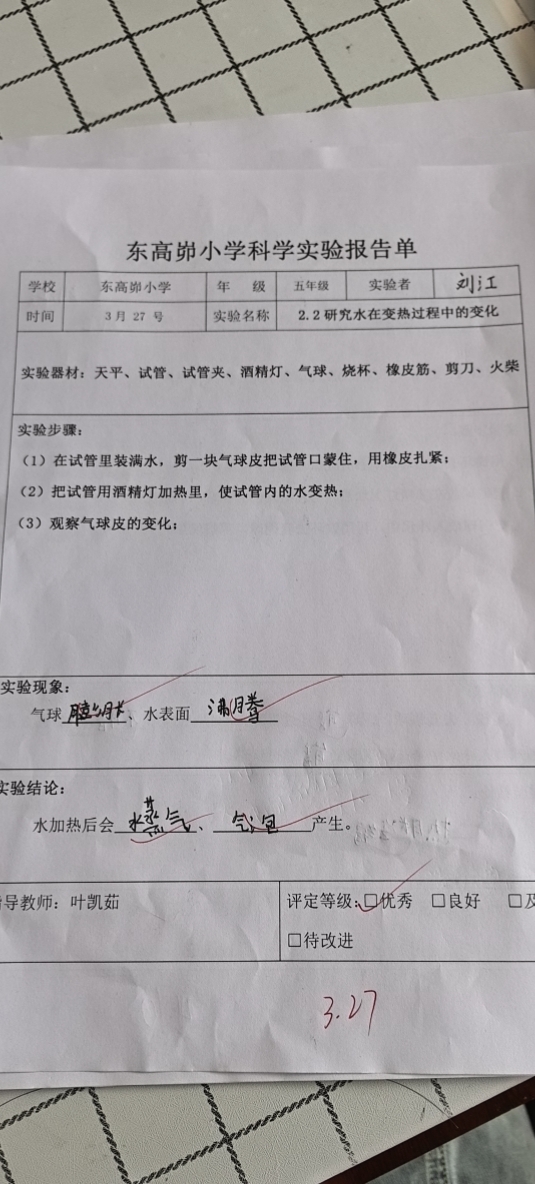 东高峁小学科学实验报告单
学校 东高峁小学 年 级 五年级 实验者 刘江
时间 3月 27 号 实验名称 2.2 研究水在变热过程中的变化
实验器材：天平、试管、试管夹、酒精灯、气球、烧杯、橡皮筋、剪刀、火柴
实验步骤：
（1）在试管里装满水，剪一块气球皮把试管口蒙住，用橡皮扎紧；
（2）把试管用酒精灯加热里，使试管内的水变热；
（3）观察气球皮的变化；
实验现象：
气球 、水表面 沸腾
实验结论：
水加热后会 水蒸气 、 气泡 产生。
指导教师：叶凯茹
评定等级：☐优秀 ☐良好 ☐及
☐待改进
3.27